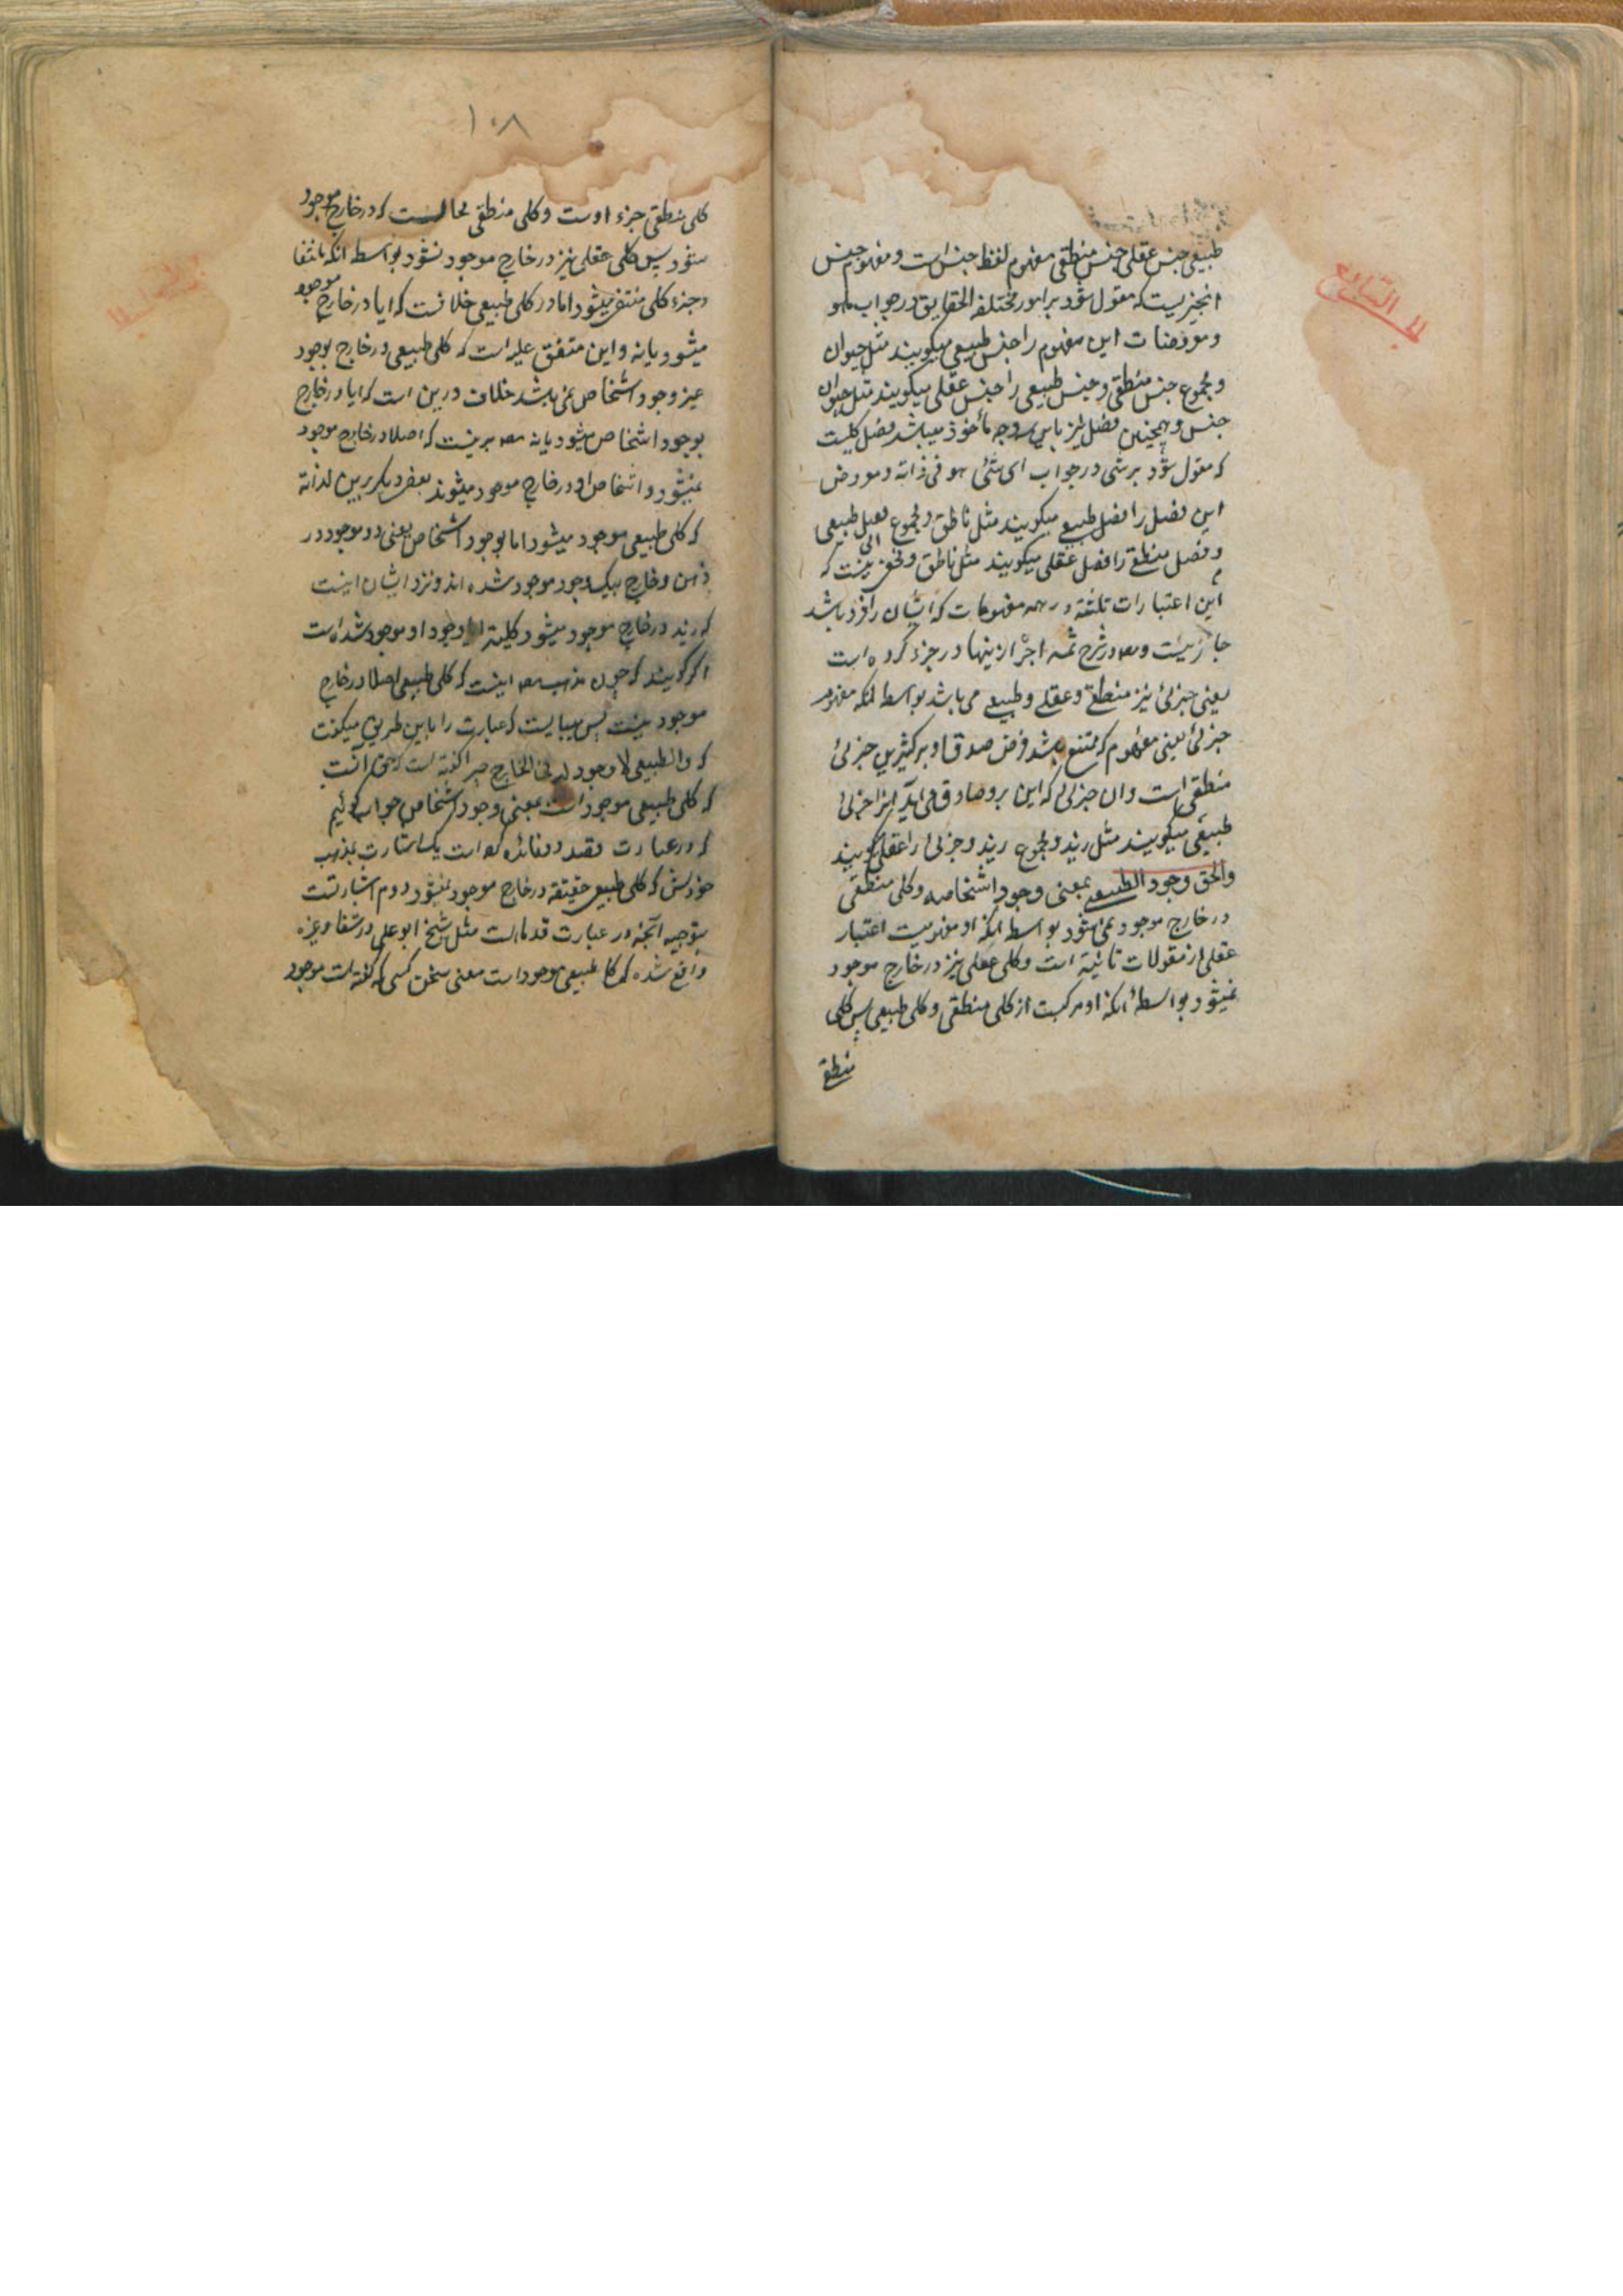 طبیعی جنس عقلی جنس منطقی مفهوم لفظ جنس است و مفهوم جنس
انچیزیست که مقول شود بر امور مختلفة الحقایق در جواب ماهو
و معروضات این مفهوم را جنس طبیعی میکویند مثل حیوان
و مجموع جنس منطقی و جنس طبیعی را جنس عقلی میکویند مثل حیوان
جنس و همچنین فصل نیز باین وجه مأخوذ میباشد فصل کلیست
که مقول شود بر شی در جواب ای شئی هو فی ذاته و معروض
این فصل را فصل طبیعی میکویند مثل ناطق و مجموع فصل طبیعی
و فصل منطقی را فصل عقلی میکویند مثل ناطق و مخفی نیست که
این اعتبارات ثلثه در همه مفهومات که ایشان را فرد باشد
جایز نیست و مصه در شرح شمسه اجراء اینها در جزء کرده است
یعنی جزئی نیز منطقی و عقلی و طبیعی می باشد بواسطه انکه مفهوم
جزئی یعنی مفهوم که ممتنع باشد فرض صدق او بر کثیرین جزئی
منطقی است وان جزئی که این برو صادق می اید انرا جزئی
طبیعی میکویند مثل زید و مجموع زید و جزئی را عقلی کویند
والحق وجود الطبیعی بمعنی وجود اشخاصه و کلی منطقی
در خارج موجود نمی شود بواسطه انکه او مفهومیست اعتبار
عقلی از معقولات ثانیة است و کلی عقلی نیز در خارج موجود
نمیشود بواسطهٔ انکه او مرکبست از کلی منطقی و کلی طبیعی پس کلی
منطقی
۱۰۸
کلی منطقی جزء اوست و کلی منطقی محالست که در خارج موجود
شود پس کلی عقلی نیز در خارج موجود نشود بواسطه انکه بانتفا
جزء کلی منتفی میشود اما در کلی طبیعی خلافست که ایا در خارج موجود
میشود یا نه و این متفق علیه است که کلی طبیعی در خارج بوجود
غیر وجود اشخاص نمی باشد خلاف درین است که ایا در خارج
بوجود اشخاص میشود یا نه مصه برینست که اصلا در خارج موجود
نمیشود و اشخاص او در خارج موجود میشوند بعضی دیکر برین رفته‌اند
که کلی طبیعی موجود میشود اما بوجود اشخاص یعنی دو موجود در
ذهن و خارج بیک وجود موجود شده اند و نزد ایشان اینست
که زید در خارج موجود میشود کلیتة او وجود او موجود شده است
اکر کویند که چون مذهب مصه اینست که کلی طبیعی اصلا در خارج
موجود نیست پس میبایست که عبارت را باین طریق میکفت
که والطبیعی لا وجود له فی الخارج چرا کفته است که حق آنست
که کلی طبیعی موجود است بمعنی وجود اشخاص جواب کوئیم
که در عبارت قصد دو فائده کرده است یک اشارت بمذهب
خودش که کلی طبیعی حقیقة در خارج موجود نمیشود دوم اشارتست
بتوجیه آنچه در عبارت قدماست مثل شیخ ابو علی در شفا و غیره
واقع شده که کلی طبیعی موجود است معنی سخن کسی که کفته است موجود